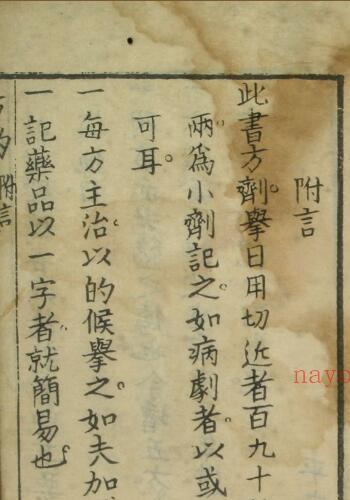 附言
此書方劑擧日用切近者百九十
兩爲小劑記之。如病劇者。以或
可耳。
一每方主治。以的候擧之。如夫加
一記藥品以一字者。就簡易也。
附言
nayo